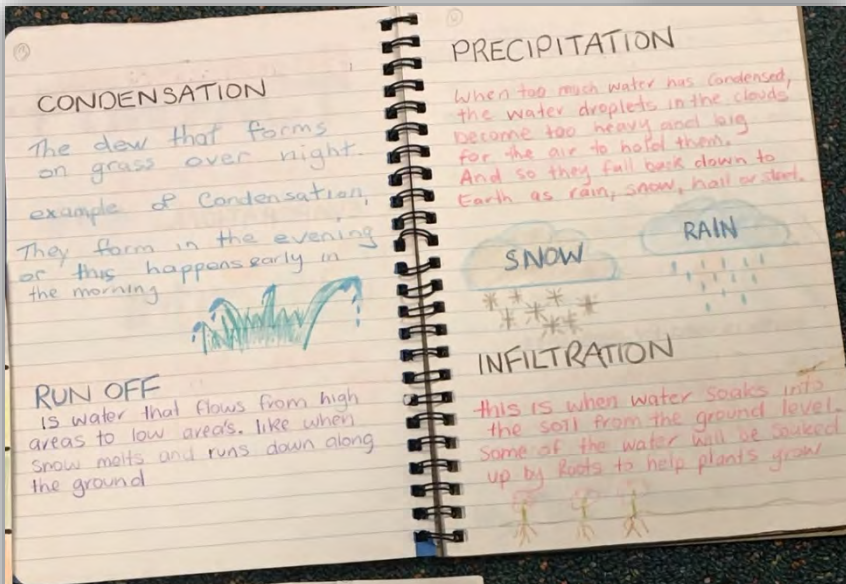 3
CONDENSATION
The dew that forms
on grass over night.
example of Condensation,
They form in the evening
or this happens early in
the morning
RUN OFF
is water that flows from high
areas to low areas. like when
snow melts and runs down along
the ground
PRECIPITATION
When too much water has condensed,
the water droplets in the clouds
become too heavy and big
for the air to hold them.
And so they fall back down to
Earth as rain, snow, hail or sleet.
SNOW
RAIN
INFILTRATION
this is when water soaks into
the soil from the ground level.
some of the water will be soaked
up by Roots to help plants grow